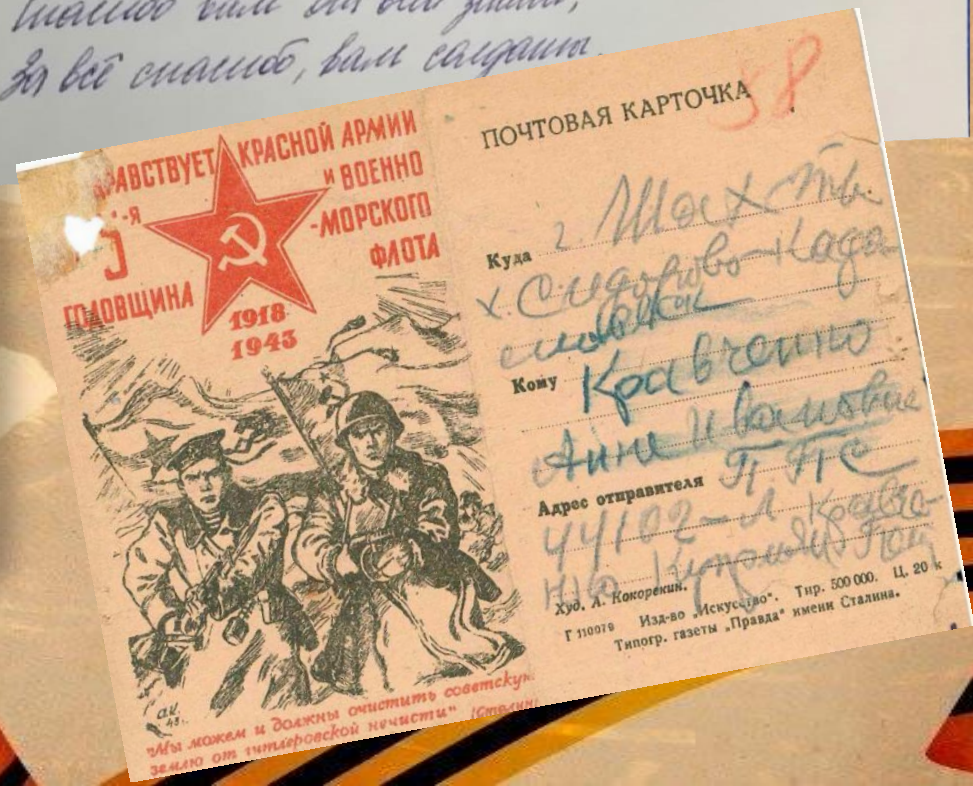 Спасибо вам
За всё спасибо, вам солдаты.
РАВСТВУЕТ КРАСНОЙ АРМИИ
-я И ВОЕННО
5 -МОРСКОГО
ГОДОВЩИНА ФЛОТА
1918
1943
А.К.
43.
"Мы можем и должны очистить советскую
землю от гитлеровской нечисти" (Сталин
58
ПОЧТОВАЯ КАРТОЧКА
Куда г. Шахты
х. Сидорово-Када
Кому Кравченко
Анне Ивановне
Адрес отправителя ППС
44102-Л Кравче
нко
Худ. А. Кокорекин.
Г 110079 Изд-во „Искусство". Тир. 500 000. Ц. 20 к
Типогр. газеты „Правда" имени Сталина.